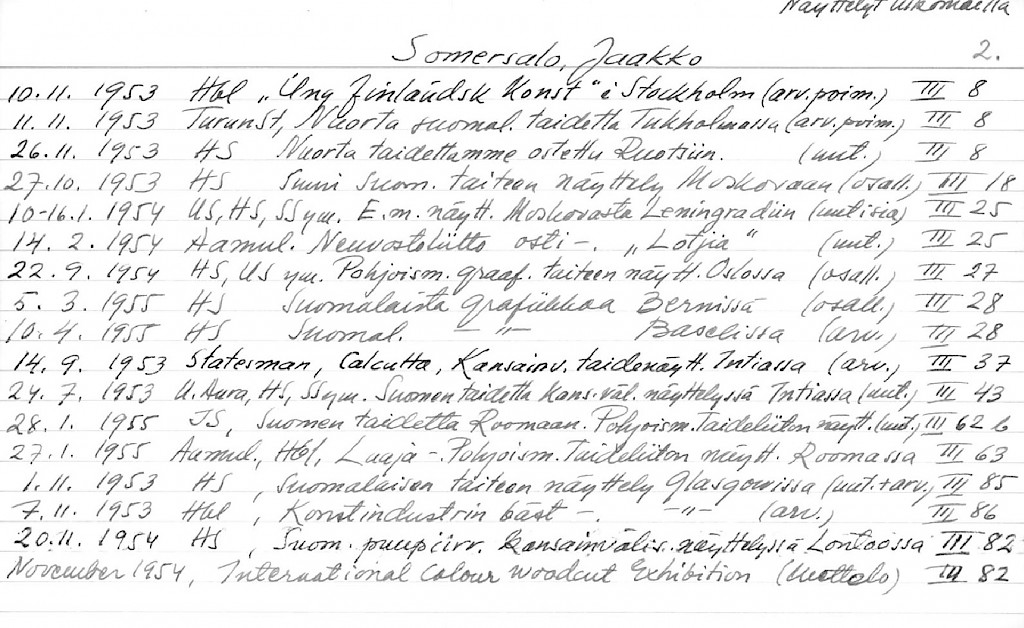 Näyttelyt ulkomailla
Somersalo, Jaakko 2.
10.11. 1953 Hbl „Ung finländsk Konst" i Stockholm (arv.poim.) III 8
11.11. 1953 TurunSt, Nuorta suomal. taidetta Tukholmassa (arv.poim.) III 8
26.11. 1953 HS Nuorta taidettamme ostettu Ruotsiin. (uut.) III 8
27.10. 1953 HS Suuri Suom. taiteen näyttely Moskovaan (osall.) III 18
10-16.1. 1954 US, HS, SSym. E.m. näytt. Moskovasta Leningradiin (uutisia) III 25
14. 2. 1954 Aamul. Neuvostoliitto osti -. „Lotjia" (uut.) III 25
22. 9. 1954 HS, US ym. Pohjoism. graaf. taiteen näytt. Oslossa (osall.) III 27
5. 3. 1955 HS Suomalaista grafiikkaa Bernissä (osall.) III 28
10. 4. 1955 HS Suomal. -"- Baselissa (arv.) III 28
14. 9. 1953 Statesman, Calcutta, Kansainv. taidenäytt. Intiassa (arv.) III 37
24. 7. 1953 U.Aura, HS, SSym. Suomen taidetta kans.väl. näyttelyssä Intiassa (uut.) III 43
28. 1. 1955 IS, Suomen taidetta Roomaan. Pohjoism. Taideliiton näytt. (uut.) III 62 b
27.1. 1955 Aamul., Hbl, Laaja -. Pohjoism. Taideliiton näytt. Roomassa III 63
1.11. 1953 HS, Suomalaisen taiteen näyttely Glasgowissa (uut.+arv.) III 85
7.11. 1953 Hbl, Konstindustrin bäst -. -"- (arv.) III 86
20.11. 1954 HS, Suom. puupiirr. kansainvälis. näyttelyssä Lontoossa III 82
November 1954, International Colour Woodcut Exhibition (luettelo) III 82